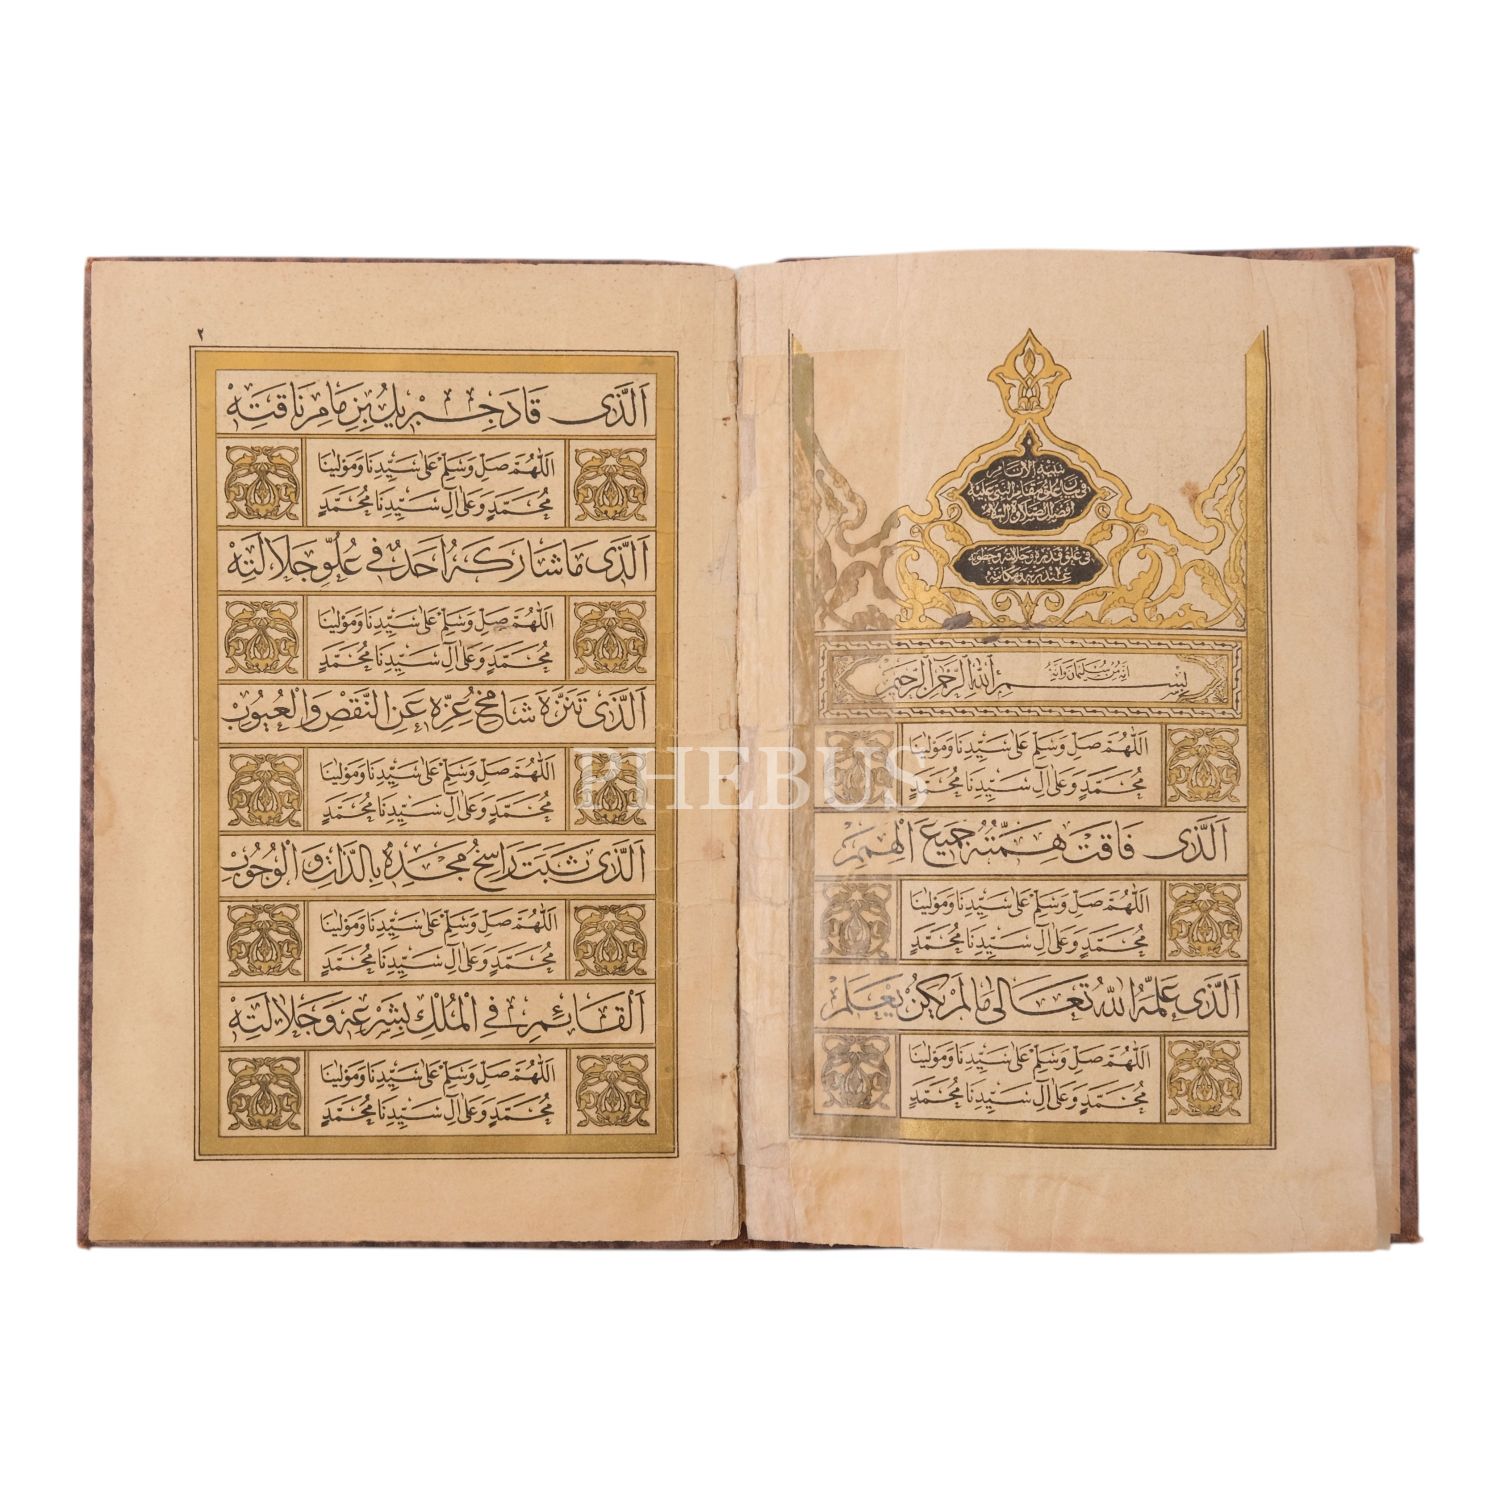 تنبيه الانام
في بيان علو مقام النبي عليه
افضل الصلاة والسلام
في علو قدره وجلالته وحظوته
عند ربه ومكانته
إنه من سليمان وإنه
بسم الله الرحمن الرحيم
اللهم صل وسلم على سيدنا ومولينا
محمد وعلى آل سيدنا محمد
الذي فاقت همته جميع الهمم
اللهم صل وسلم على سيدنا ومولينا
محمد وعلى آل سيدنا محمد
الذي علمه الله تعالى ما لم يكن يعلم
اللهم صل وسلم على سيدنا ومولينا
محمد وعلى آل سيدنا محمد
٢
الذي قاد جبريل بزمام ناقته
اللهم صل وسلم على سيدنا ومولينا
محمد وعلى آل سيدنا محمد
الذي ما شاركه احد في علو جلالته
اللهم صل وسلم على سيدنا ومولينا
محمد وعلى آل سيدنا محمد
الذي تنزه شامخ عزه عن النقص والعيوب
اللهم صل وسلم على سيدنا ومولينا
محمد وعلى آل سيدنا محمد
الذي ثبت راسخ مجده بالذات والوجوب
اللهم صل وسلم على سيدنا ومولينا
محمد وعلى آل سيدنا محمد
القائم في الملك بشرعه وجلالته
اللهم صل وسلم على سيدنا ومولينا
محمد وعلى آل سيدنا محمد
PHEBUS